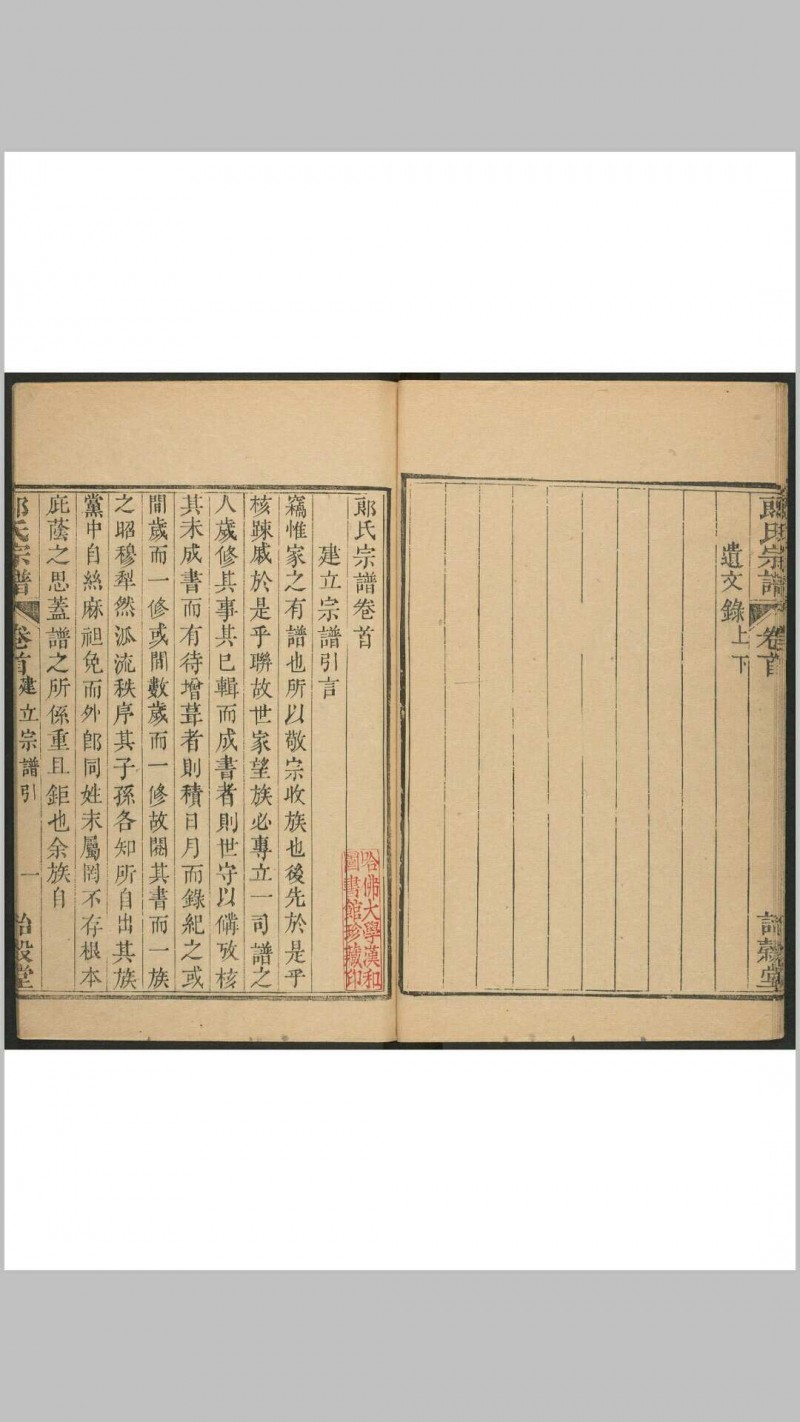 郎氏宗譜 卷首
遺文錄上下
詒穀堂
郎氏宗譜卷首
建立宗譜引言
竊惟家之有譜也所以敬宗收族也後先於是乎
核踈戚於是乎聨故世家望族必專立一司譜之
人歲修其事其已輯而成書者則世守以備攷核
其未成書而有待增葺者則積日月而錄紀之或
間歲而一修或間數歲而一修故閱其書而一族
之昭穆犁然泒流秩序其子孫各知所自出其族
黨中自絲麻袒免而外卽同姓末屬罔不存根本
庇蔭之思蓋譜之所係重且鉅也余族自
郎氏宗譜 卷首 建立宗譜引 一 詒穀堂
哈佛大學漢和
圖書館珍藏印